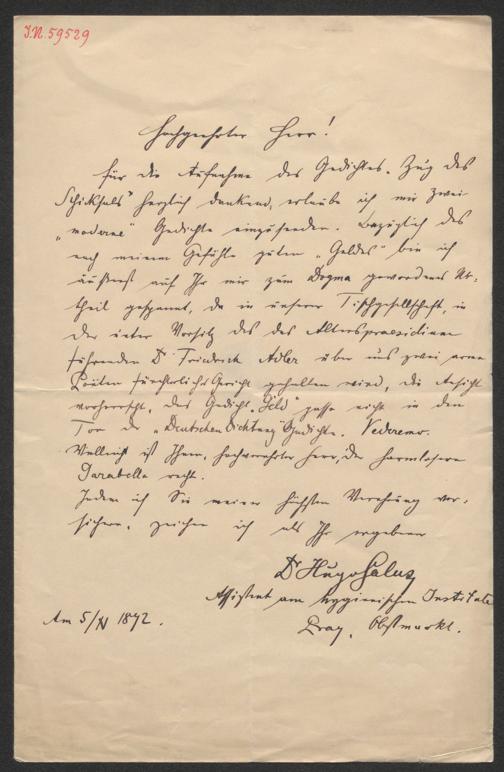 I.N. 59529
Hochgeehrter Herr!
Für die Aufnahme des Gedichtes „Zug des
Schicksals" herzlich dankend, erlaube ich mir zwei
„moderne" Gedichte einzusenden. Bezüglich des
nach meinem Gefühle guten „Geldes" bin ich
äußerst auf Ihr mir zum Dogma gewordenes Ur-
theil gespannt, da in unserer Tischgesellschaft, in
der unter Vorsitz des das Alterspraesidium
führenden Dr Friedrich Adler über uns zwei arme
Poëten fürchterliches Gericht gehalten wird, die Ansicht
vorherrscht, das Gedicht „Geld" passe nicht in den
Ton der „Deutschen Dichtung" Gedichte. Vederemo.
Vielleicht ist Ihnen, hochverehrter Herr, die harmlosere
Parabella recht.
Indem ich Sie meiner höchsten Verehrung ver-
sichere, zeichne ich als Ihr ergebener
Dr Hugo Salus
Assistent am hygienischen Institute
Am 5/XI 1892.
Prag, Obstmarkt.